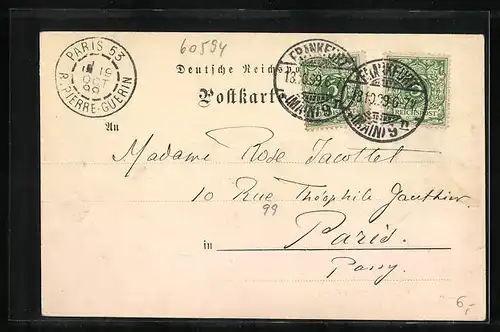 60594
PARIS 53
OCT
99
R. PIERRE-GUERIN
Deutsche Reichspo
Postkarte
FRANKFURT
(MAIN) 9
FRANKFURT
(MAIN) 9
REICHSPOST
An
Madame Rose Jacottet
10 Rue Théophile Gauthier.
99
in Paris.
Passy.
6,-